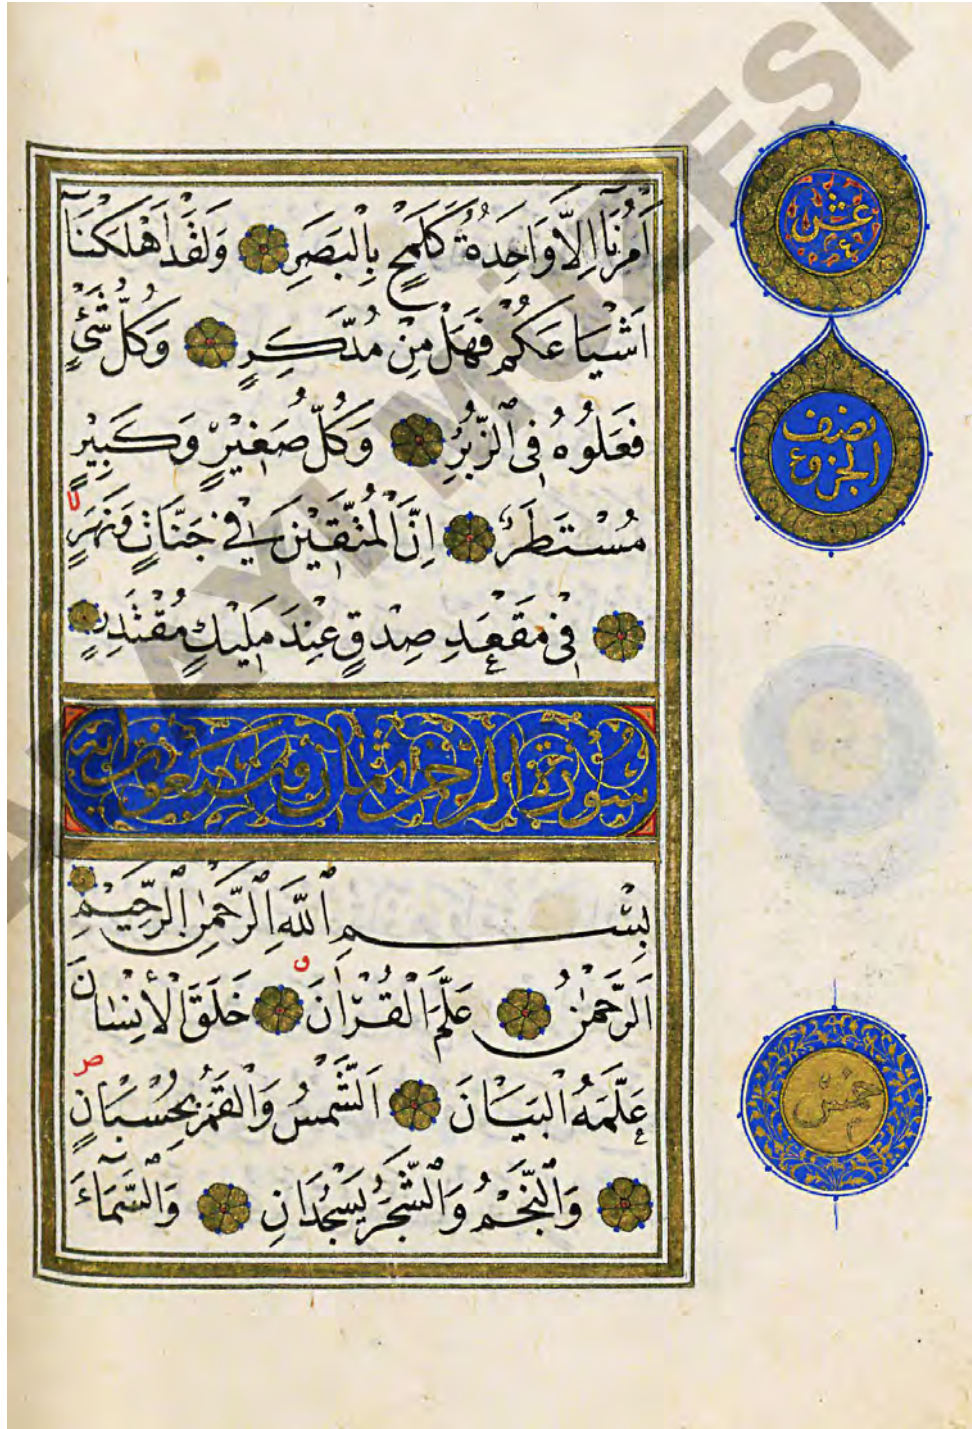 اَمْرُنَٓا اِلَّا وَاحِدَةٌ كَلَمْحٍ بِالْبَصَرِ وَلَقَدْ اَهْلَكْنَٓا
اَشْيَاعَكُمْ فَهَلْ مِنْ مُدَّكِرٍ وَكُلُّ شَيْءٍ
فَعَلُوهُ فِى الزُّبُرِ وَكُلُّ صَغِيرٍ وَكَبِيرٍ
لا
مُسْتَطَرٌ اِنَّ الْمُتَّقِينَ فِى جَنَّاتٍ وَنَهَرٍ
فِى مَقْعَدِ صِدْقٍ عِنْدَ مَلِيكٍ مُقْتَدِرٍ
سورة الرحمن ثمان وسبعون اية
بِسْمِ اللّٰهِ الرَّحْمٰنِ الرَّحِيمِ
اَلرَّحْمٰنُ عَلَّمَ الْقُرْاٰنَ خَلَقَ الْاِنْسَانَ
ص
عَلَّمَهُ الْبَيَانَ اَلشَّمْسُ وَالْقَمَرُ بِحُسْبَانٍ
وَالنَّجْمُ وَالشَّجَرُ يَسْجُدَانِ وَالسَّمَٓاءَ
عشر
نصف
الجزؤ
خمس
MÜZESİ